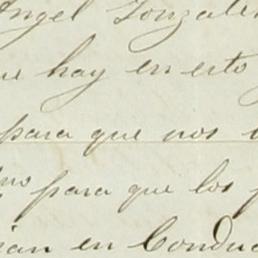 Angel Gonzales
hay en esto
para que nos
para que los
en Conduc